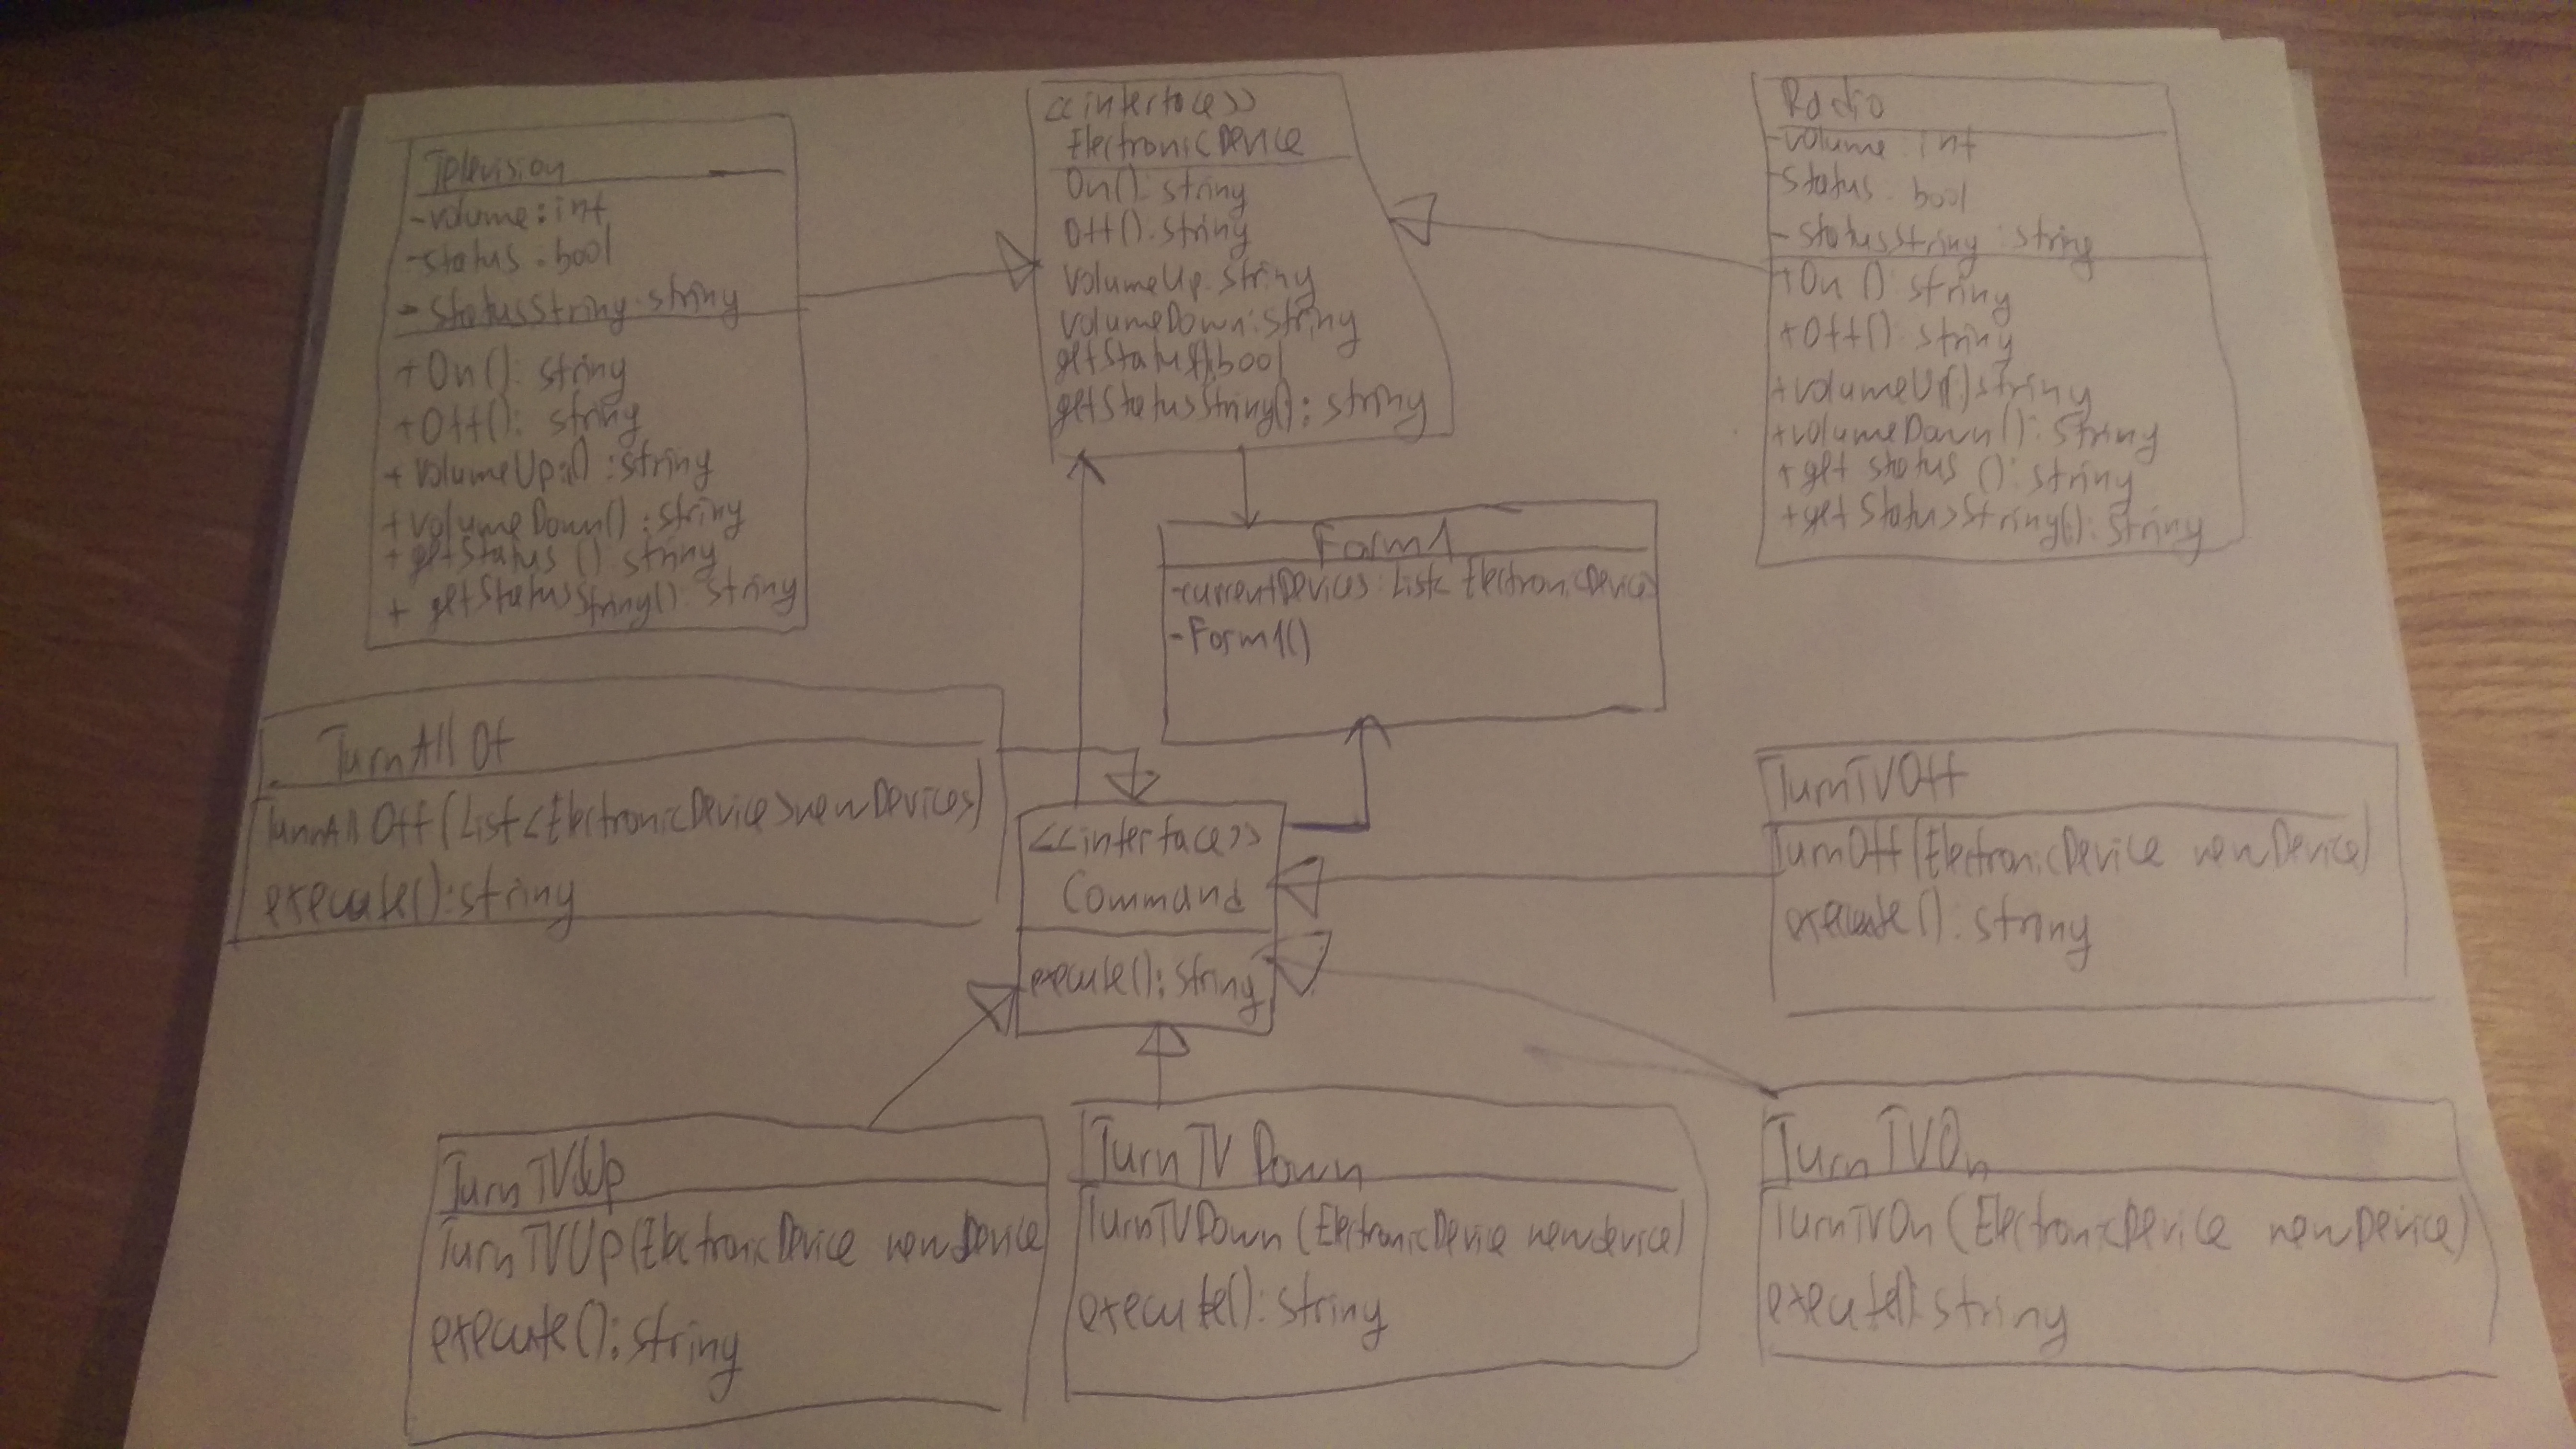 Television
-volume: int
-status: bool
- statusString: string
+ On(): string
+ Off(): string
+ VolumeUp:() : string
+ volumeDown() : string
+ getStatus () : string
+ getStatusString() : string
<<interface>>
ElectronicDevice
On(): string
Off(): string
VolumeUp: string
volumeDown: string
getStatus():bool
getStatusString(): string
Radio
-volume: int
-status: bool
- statusString: string
+ On (): string
+ Off(): string
+volumeUp():string
+volumeDown(): string
+ get status (): string
+get StatusString(): string
Form1
-currentDevices: List< ElectronicDevices
-Form1()
TurnAll Of
TurnAll Off(List<ElectronicDevice>newDevices)
execute():string
<<interface>>
Command
execute(): string
TurnTVOff
TurnOff(ElectronicDevice newDevice)
execute(): string
TurnTVUp
TurnTVUp(ElectronicDevice newDevice
execute(): string
TurnTV Down
TurnTVDown (ElectronicDevice newdevice)
execute(): string
TurnTVOn
TurnTVOn (ElectronicDevice newDevice)
execute(): string